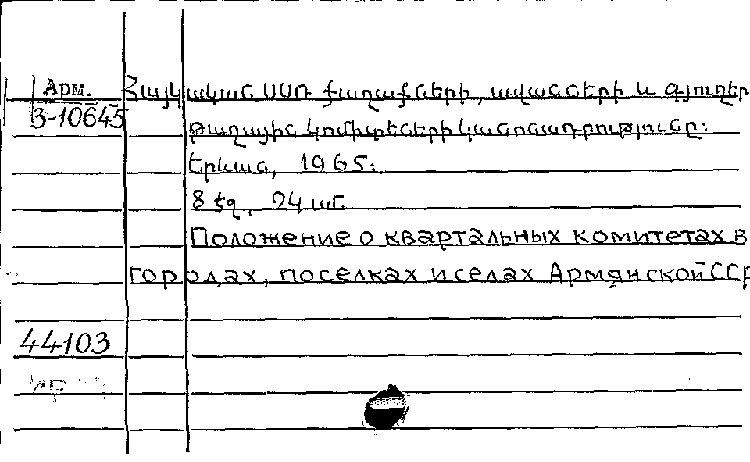 Арм. Հայկական ՍՍՌ քաղաքների, ավանների և գյուղեր
3-10645 թաղային կոմիտեների կանոնադրությունը:
Երևան, 1965.
8 էջ, 24 սմ.
Положение о квартальных комитетах в
городах, поселках и селах Армянской ССР
44103